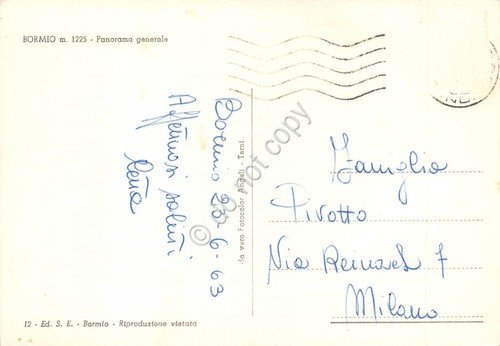 BORMIO m. 1225 - Panorama generale
Bormio 23-6-63
Affettuosi saluti
Famiglia
Pivotto
Via Reinach 7
Milano
da vera Fotocolor Angeli - Terni
12 - Ed. S. E. - Bormio - Riproduzione vietata
© do not copy